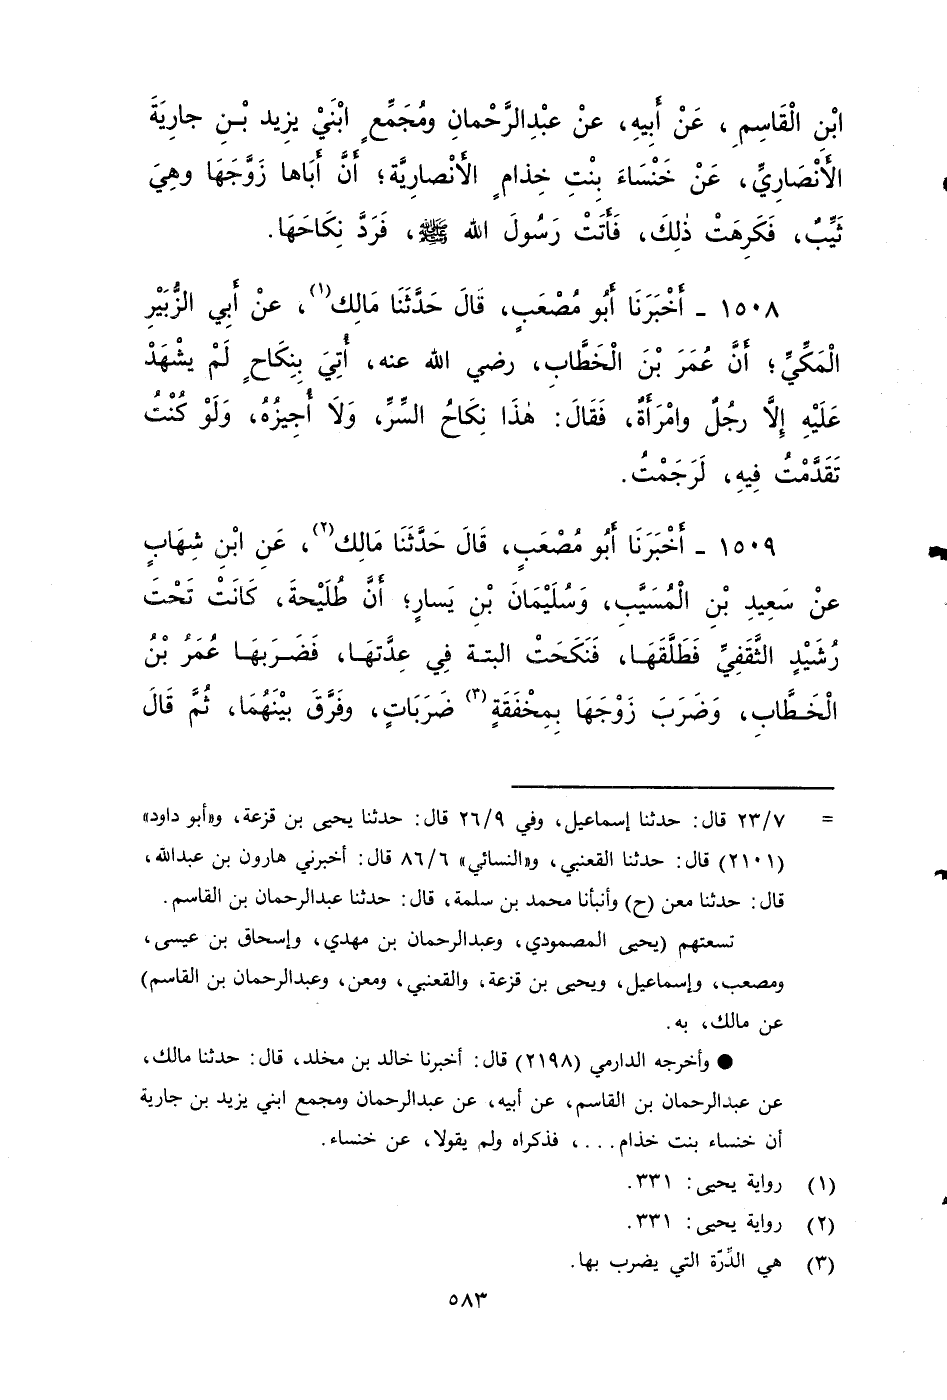 ابْنِ الْقَاسِمِ، عَنْ أَبِيهِ، عنْ عبْدِالرَّحْمانِ ومُجَمِّعٍ ابْنَيْ يزِيد بْـنِ جارِيَةَ
الأَنْصَارِيِّ، عَنْ خَنْسَاءَ بِنْتِ خِذامٍ الأَنْصارِيَّة؛ أَنَّ أَبَاها زَوَّجَهَا وهِيَ
ثَيِّبٌ، فَكَرِهَتْ ذٰلِكَ، فَأَتَتْ رَسُولَ الله ﷺ، فَرَدَّ نِكَاحَهَا.
١٥٠٨ - أَخْبَرَنَا أَبُو مُصْعَبٍ، قَالَ حَدَّثَنَا مَالِك(١)، عنْ أَبِي الزُّبَيْرِ
الْمَكِّيِّ؛ أَنَّ عُمَرَ بْنَ الْخَطَّاب، رضي الله عنه، أُتِيَ بِنِكَاحٍ لَمْ يشْهَدْ
عَلَيْهِ إِلَّا رجُلٌ وامْرَأَةٌ، فَقَالَ: هٰذَا نِكَاحُ السِّرِّ، وَلَا أُجِيزُهُ، وَلَوْ كُنْتُ
تَقَدَّمْتُ فِيهِ، لَرَجَمْتُ.
١٥٠٩ - أَخْبَرَنَا أَبُو مُصْعَبٍ، قَالَ حَدَّثَنَا مَالِك(٢)، عَنِ ابْنِ شِهَابٍ
عنْ سَعِيدِ بْنِ الْمُسَيَّبِ، وَسُلَيْمَانَ بْنِ يَسارٍ؛ أَنَّ طُلَيْحةَ، كَانَتْ تَحْتَ
رُشَيْدٍ الثَّقَفِيِّ فَطَلَّقَهَـا، فَنَكَحَتْ البتـة فِي عِدَّتهَـا، فَضَـرَبهَـا عُمَرُ بْنُ
الْخَـطَّابِ، وَضَرَبَ زَوْجَهَا بِمِخْفَقَةٍ(٣) ضَرَبَاتٍ، وفَرَّقَ بيْنَهُمَا، ثُمَّ قَالَ
= ٢٣/٧ قال: حدثنا إسماعيل، وفي ٢٦/٩ قال: حدثنا يحيى بن قزعة، و«أبو داود»
(٢١٠١) قال: حدثنا القعنبي، و«النسائي» ٨٦/٦ قال: أخبرني هارون بن عبدالله،
قال: حدثنا معن (ح) وأنبأنا محمد بن سلمة، قال: حدثنا عبدالرحمان بن القاسم.
تسعتهم (يحيى المصمودي، وعبدالرحمان بن مهدي، وإسحاق بن عيسى،
ومصعب، وإسماعيل، ويحيى بن قزعة، والقعنبي، ومعن، وعبدالرحمان بن القاسم)
عن مالك، به.
● وأخرجه الدارمي (٢١٩٨) قال: أخبرنا خالد بن مخلد، قال: حدثنا مالك،
عن عبدالرحمان بن القاسم، عن أبيه، عن عبدالرحمان ومجمع ابني يزيد بن جارية
أن خنساء بنت خذام ...، فذكراه ولم يقولا، عن خنساء.
(١) رواية يحيى: ٣٣١.
(٢) رواية يحيى: ٣٣١.
(٣) هي الدِّرّة التي يضرب بها.
٥٨٣